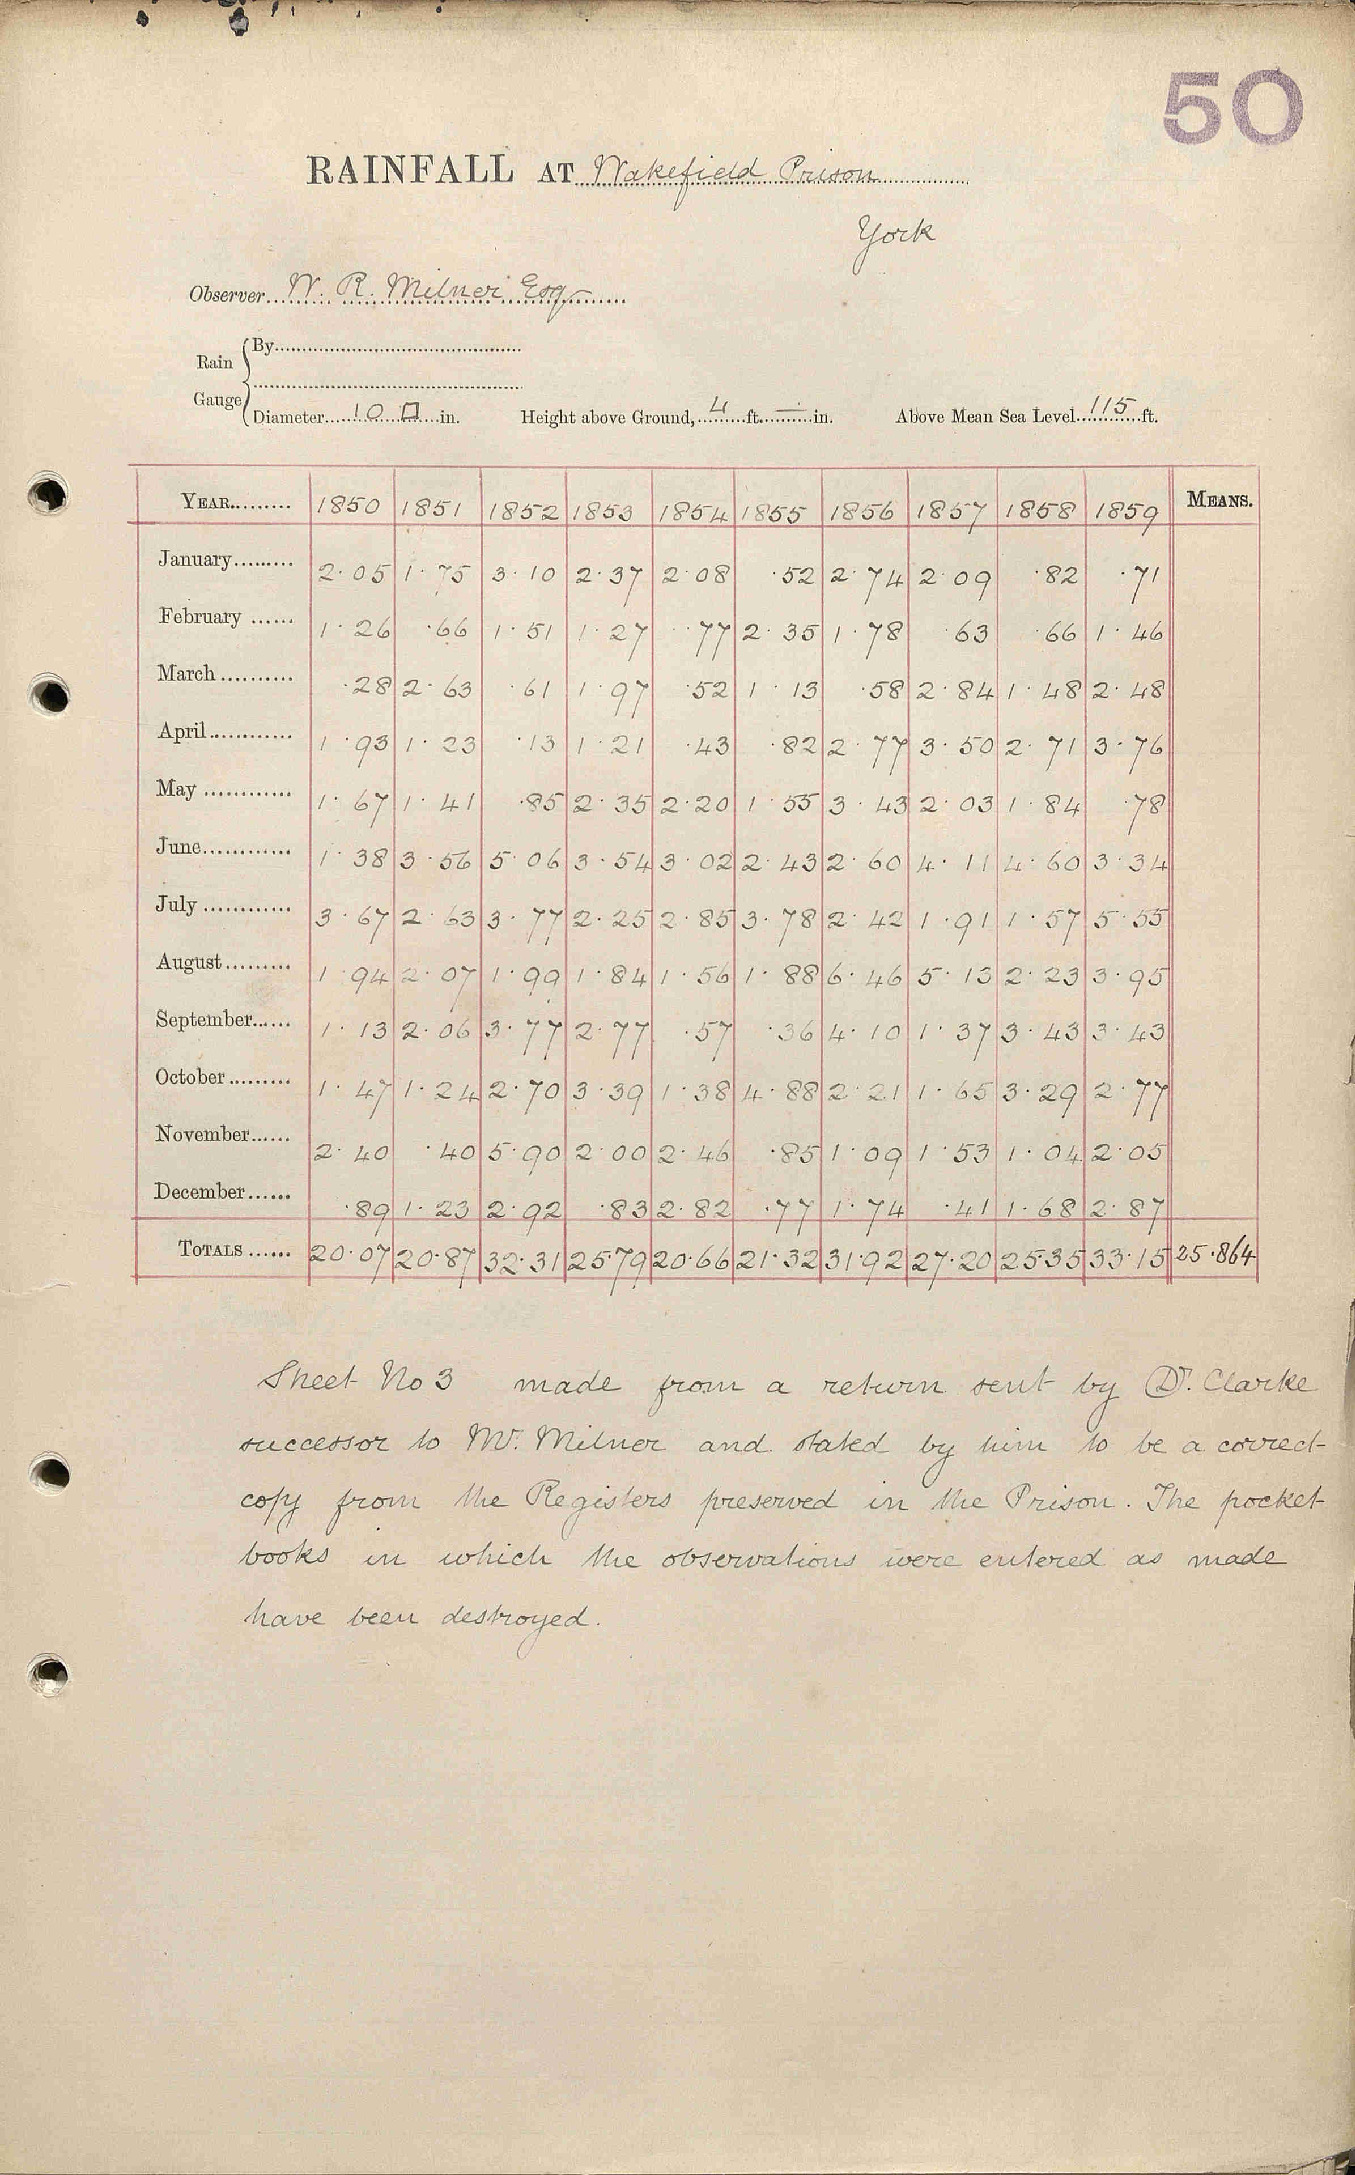 50
RAINFALL AT Wakefield Prison
York
Observer W. R. Milner Esq
Rain Gauge { By
Diameter 10 □ in. Height above Ground, 4 ft. — in. Above Mean Sea Level 115 ft.
YEAR 1850 1851 1852 1853 1854 1855 1856 1857 1858 1859 MEANS.
January 2·05 1·75 3·10 2·37 2·08 ·52 2·74 2·09 ·82 ·71
February 1·26 ·66 1·51 1·27 ·77 2·35 1·78 ·63 ·66 1·46
March ·28 2·63 ·61 1·97 ·52 1·13 ·58 2·84 1·48 2·48
April 1·93 1·23 ·13 1·21 ·43 ·82 2·77 3·50 2·71 3·76
May 1·67 1·41 ·85 2·35 2·20 1·55 3·43 2·03 1·84 ·78
June 1·38 3·56 5·06 3·54 3·02 2·43 2·60 4·11 4·60 3·34
July 3·67 2·63 3·77 2·25 2·85 3·78 2·42 1·91 1·57 5·55
August 1·94 2·07 1·99 1·84 1·56 1·88 6·46 5·13 2·23 3·95
September 1·13 2·06 3·77 2·77 ·57 ·36 4·10 1·37 3·43 3·43
October 1·47 1·24 2·70 3·39 1·38 4·88 2·21 1·65 3·29 2·77
November 2·40 ·40 5·90 2·00 2·46 ·85 1·09 1·53 1·04 2·05
December ·89 1·23 2·92 ·83 2·82 ·77 1·74 ·41 1·68 2·87
TOTALS 20·07 20·87 32·31 25·79 20·66 21·32 31·92 27·20 25·35 33·15 25·864
Sheet No 3 made from a return sent by Dr. Clarke
successor to Mr. Milner and stated by him to be a correct
copy from the Registers preserved in the Prison. The pocket
books in which the observations were entered as made
have been destroyed.